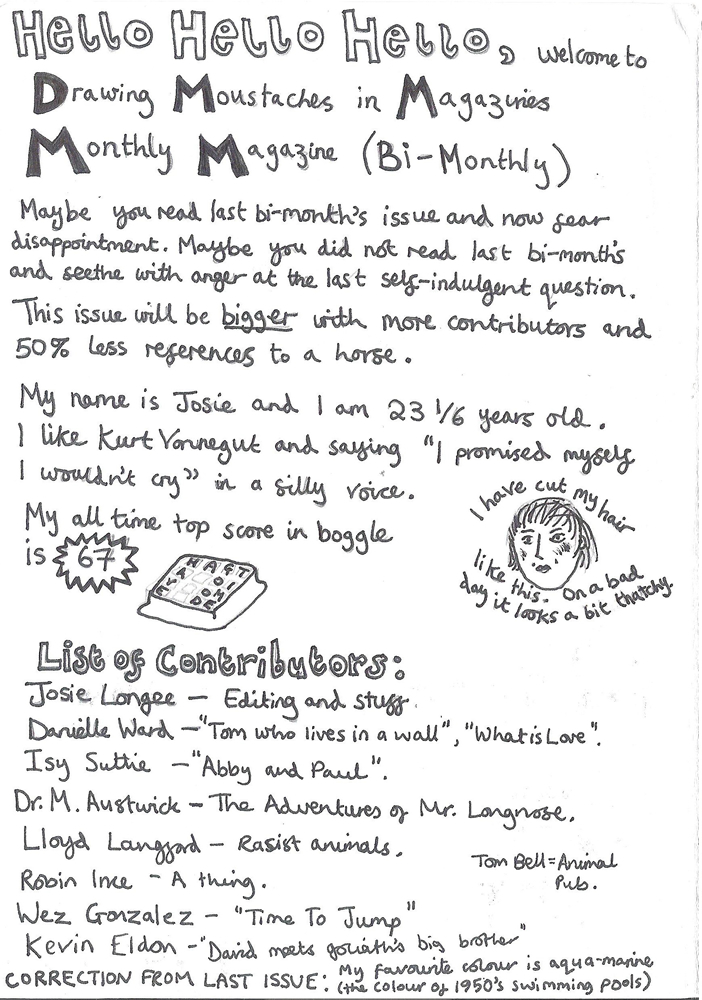 Hello Hello Hello, welcome to
Drawing Moustaches in Magazines
Monthly Magazine (Bi-Monthly)
Maybe you read last bi-month's issue and now fear
disappointment. Maybe you did not read last bi-month's
and seethe with anger at the last self-indulgent question.
This issue will be bigger with more contributors and
50% less references to a horse.
My name is Josie and I am 23 1/6 years old.
I like Kurt Vonnegut and saying "I promised myself
I wouldn't cry" in a silly voice.
My all time top score in boggle
is 67
I have cut my hair
like this. On a bad
day it looks a bit thatchy.
List of Contributors:
Josie Longee – Editing and stuff.
Danielle Ward – "Tom who lives in a wall", "What is Love".
Isy Suttie – "Abby and Paul".
Dr. M. Austwick – The Adventures of Mr. Longnose.
Lloyd Langford – Rasist animals.
Tom Bell = Animal
Pub.
Robin Ince – A thing.
Wez Gonzalez – "Time To Jump"
Kevin Eldon – "David meets goliath's big brother"
CORRECTION FROM LAST ISSUE: My favourite colour is aqua-marine
(the colour of 1950's swimming pools)